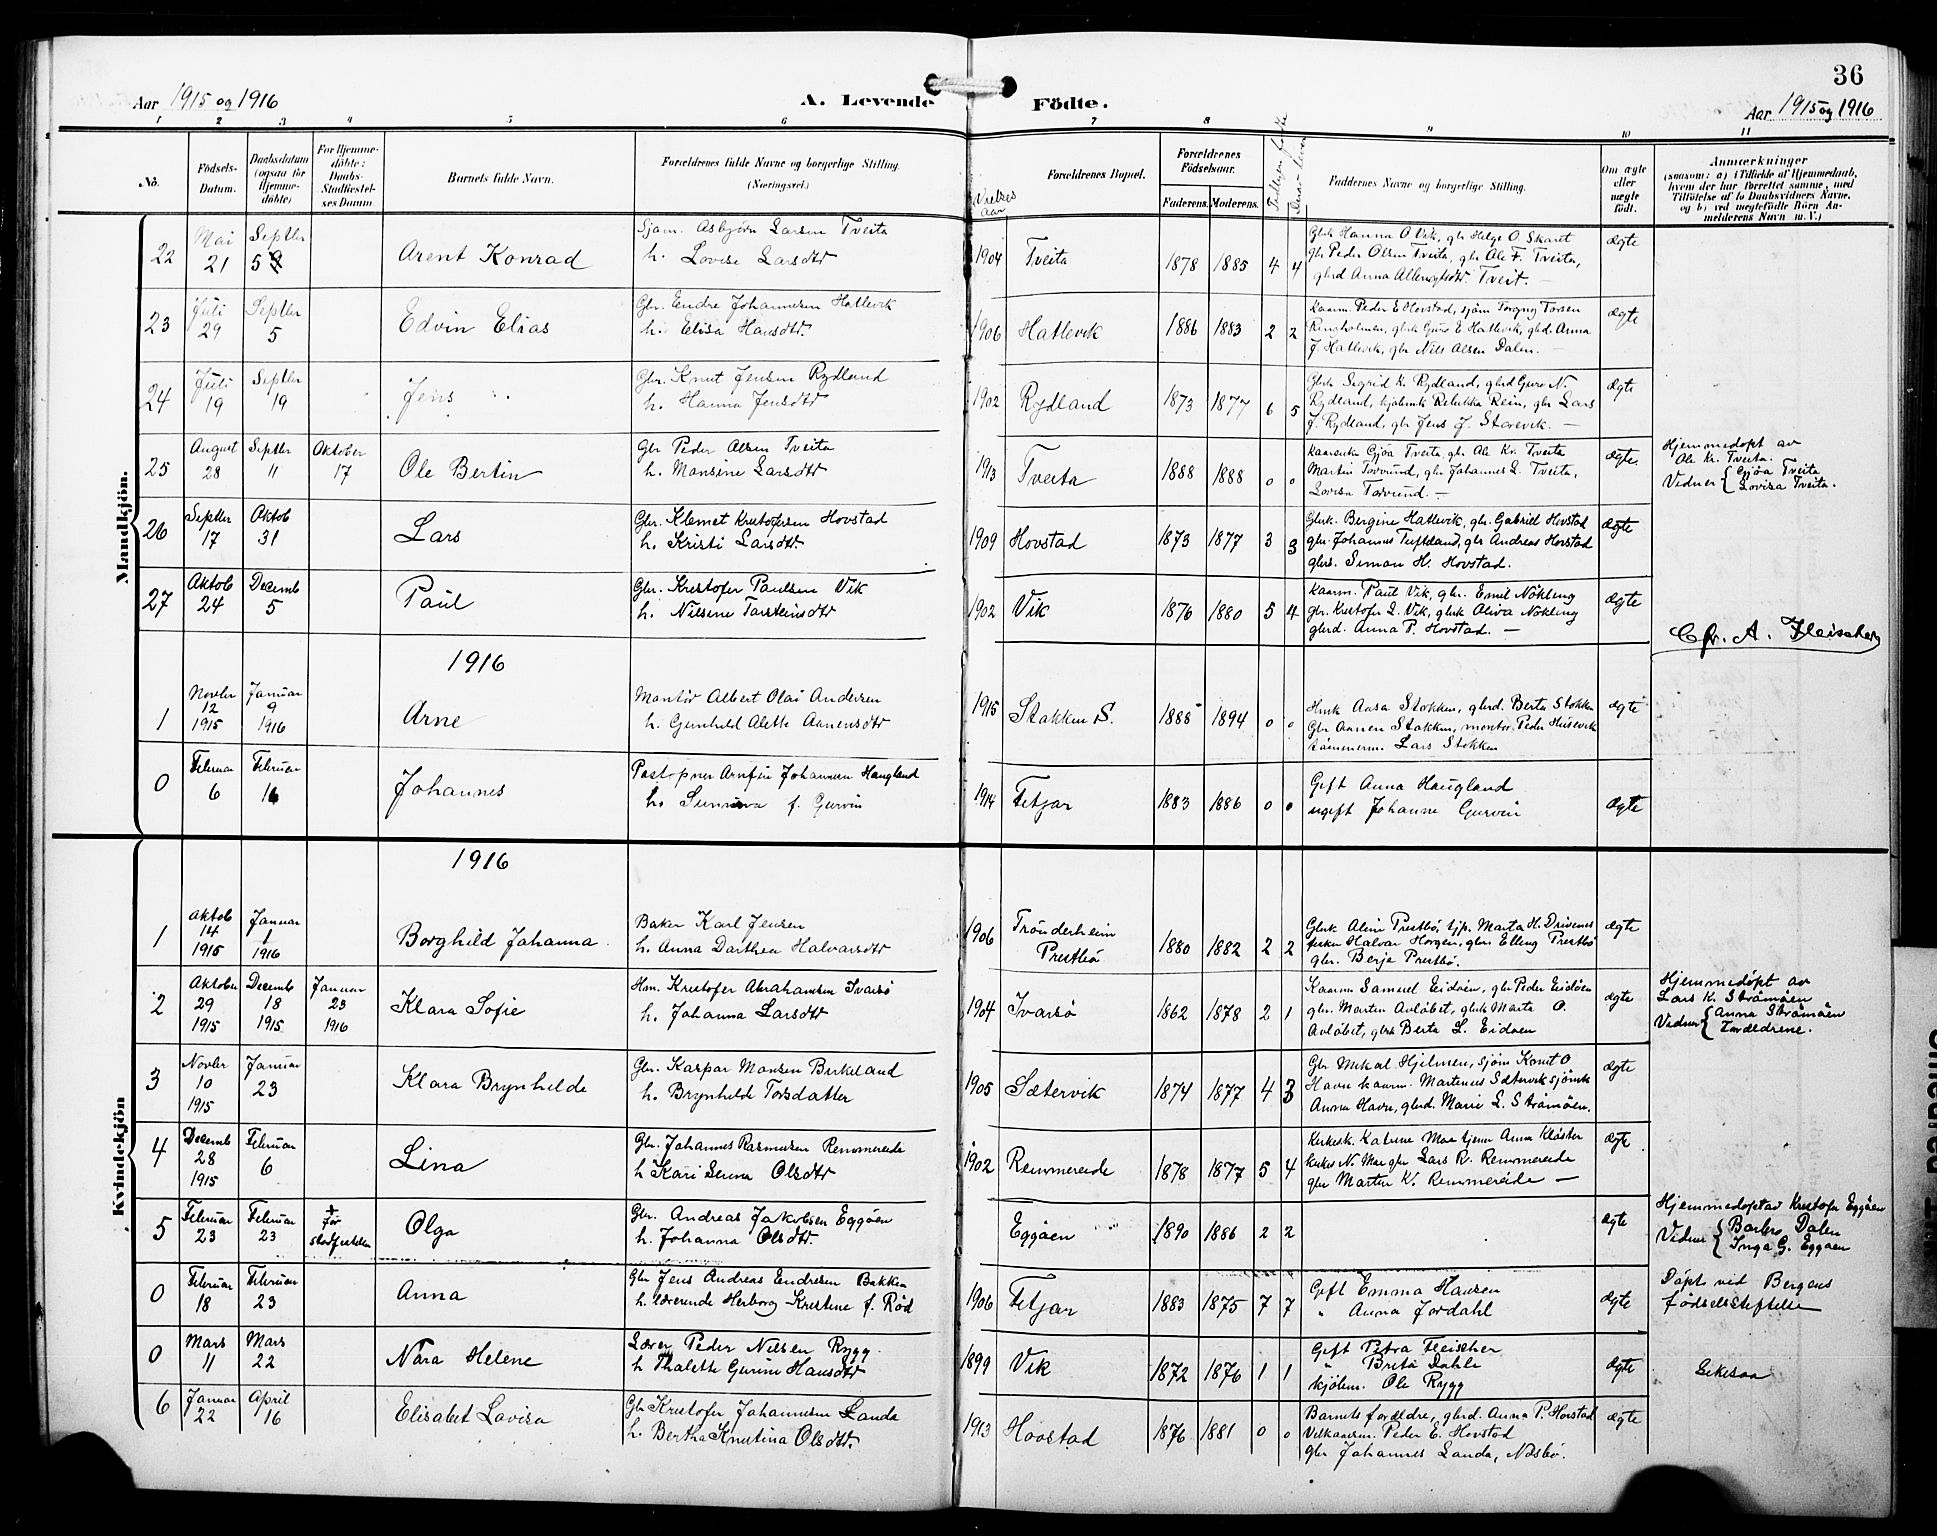 36
Aar 1915 og 1916
A. Levende Födte.
Aar 1915 og 1916
1 2 3 4 5 6 7 8 9 10 11
No.
Födsels-Datum.
Daabsdatum (ogsaa for Hjemme-döbte)
For Hjemme-döbte: Daabs-Stadfæstel-ses Datum
Barnets fulde Navn.
Forældrenes fulde Navne og borgerlige Stilling. (Næringsvei.)
Vielses aar
Forældrenes Bopæl.
Forældrenes Födselsaar.
Faderens. Moderens.
Faddernes Navne og borgerlige Stilling.
Om ægte eller uægte födt.
Anmærkninger
(saasom: a) i Tilfælde af Hjemmedaab,
hvem der har forrettet samme, med
Tilföielse af to Daabsvidners Navne,
og b) ved uægtefödte Börn An-
melderens Navn m. V.)
Mandkjön.
22 Mai 21 Septbr 5 Arent Konrad
Sjøm. Asbjörn Larsen Tveita
h. Lovise Larsdtr
1904 Tveita 1878 1885 4 4
Glrk Hanna O Vik, gbr Helge O. Skaret
gbr Peder Olsen Tveita, gbr Ole F. Tveita,
Tveit. ægte
23 Juli 29 Septbr 5 Edvin Elias
Gbr. Endre Johannesen Hatlevik
h. Elisa Hansdtr.
1906 Hatlevik 1886 1883 2 2
Kaarm. Peder E Hovstad, sjøm Torgny Torsen
Ringholmen, gbrk Guro E Hatlevik, gbd. Anna
J. Hatlevik, gbr Nils Olsen Dalen. ægte
24 Juli 19 Septbr 19 Jens
Gbr. Knut Jensen Rydland
h. Hanna Jensdtr
1902 Rydland 1873 1877 6 5
Gbrk Sigrid K. Rydland, gbrd Guro N.
Rydland, Rebekka Rein, gbr Lars
J. Rydland, gbr Jens J. Storevik. — ægte
25 August 28 Septbr 11 Oktober 17 Ole Bertin
Gbr Peder Olsen Tveita
h. Monsine Larsdtr
1913 Tveita 1888 1888 0 0
Gjöa Tveita, gbr Ole Kr. Tveita
Martin Torvund, gbr Johannes L. Tveita,
Lovisa Torvund. — ægte
Hjemmedöpt av
Ole Kr. Tveita.
Vidner { Gjöa Tveita
Lovisa Tveita.
26 Septbr 17 Oktob 31 Lars
Gbr. Klemet Kristofersen Hovstad
h. Kristi Larsdtr.
1909 Hovstad 1873 1877 3 3
Gbrk. Bergine Hatlevik, gbr. Gabriel Hovstad
gbr. Johannes Tufteland, gbr Andreas Hovstad
gbrs. Simon H. Hovstad. ægte
27 Oktob 24 Decemb 5 Paul
Gbr. Kristofer Paulsen Vik
h. Nilsine Torsteinsdtr
1902 Vik 1876 1880 5 4
Kaarm. Paul Vik, gbr. Emil Nökling
gbr. Kristofer L. Vik, gbrk Oliva Nökling
gbrd. Anna P. Hovstad. — ægte
Chr. A. Fleischer
1916
1 Novbr 12 1915 Januar 9 1916 Arne
Montör Albert Olai Andersen
h. Gunhild Alette Aanensdtr
1915 Stokken S. 1888 1894 0 0
Hmk Aasa Stokken, gbrd. Berta Stokken
Gbr Aanen Stokken, montør Peder Husevik
tömmerm. Lars Stokken ægte
0 Februar 6 Februar 16 Johannes
Postopner Arnfin Johannesen Haugland
h. Sunniva f. Gurvin
1914 Fitjar 1883 1886 0 0
Gift Anna Haugland
ugift Johanne Gurvin ægte
Kvindekjön
1916
1 Oktob 14 1915 Januar 1 1916 Borghild Johanna
Baker Karl Jensen
h. Anna Dorthea Halvarsdtr
1906 Trönderheim Prestbö 1880 1882 2 2
Gbrk Alvin Prestbö, tjp. Marta H. Drivenes
fisker Halvar Horgen, gbr. Elling Prestbö
gbr. Berje Prestbö. ægte
2 Oktober 29 1915 Decemb 18 1915 Januar 23 1916 Klara Sofie
Hm. Kristofer Abrahamsen Ivarsö
h. Johanna Larsdtr
1904 Ivarsö 1862 1878 2 1
Kaarm Samuel Eidöen, gbr Peder Eidöen
gbr. Marten Avlöbet, gbrk Marta O.
Avlöbet, gbrk Berta L. Eidöen ægte
Hjemmedöpt av
Lars K. Strömöen
Vidner { Anna Strömöen
Forældrene.
3 Novbr 10 1915 Januar 23 Klara Brynhilde
Gbr. Kaspar Monsen Birkeland
h. Brynhilde Torsdatter
1905 Sætervik 1874 1877 4 3
Gbr Mikal Hjelmen, sjøm Kornt O
Havn kaarm. Martinus Sætervik sjömk
Anna Havn, gbrd. Marie L. Strömöen. ægte
4 Decemb 28 1915 Februar 6 Lina
Gbr. Johannes Rasmusen Remmereide
h Kari Serina Olsdtr
1902 Remmereide 1878 1877 5 4
Kirkesk. Katrine Mæ tjener Anna Klöster
kirkes N. Mæ gbr Lars R. Remmereide
gbr Martin K. Remmereide — ægte
5 Februar 23 Februar 23 + för stadfestelsen Olga
Gbr. Andreas Jakobsen Eggöen
h. Johanna Olsdtr.
Eggöen 1890 1886 2 2 ægte
Hjemmedöpt av Kristofer Eggöen
Vidner { Barbro Dalen
Inga G. Eggöen
0 Februar 18 Februar 23 Anna
Gbr Jens Andreas Endresen Bakken
h. lærerinde Herborg Kristine f. Röd
1906 Fitjar 1883 1875 7 7
Gift Emma Hansen
" Anna Jordahl ægte
Döpt ved Bergens
födselsstiftelse
0 Mars 11 Mars 22 Nora Helene
Lærer Peder Nilsen Rygg
h Thalette Gurine Hansdtr
1899 Vik 1872 1876 1 1
Gift Petra Fleischer
" Brita Dahle
kjölem. Ole Rygg ægte
6 Januar 22 April 16 Elisabet Lovisa
Gbr Kristofer Johannesen Landa
h. Bertha Knutina Olsdtr.
1913 Hovstad 1876 1881 0 0
Barnets forældre, gbrd. Anna P. Hovstad
Peder E. Hovstad
gbr Johannes Landa, Nesbö. ægte